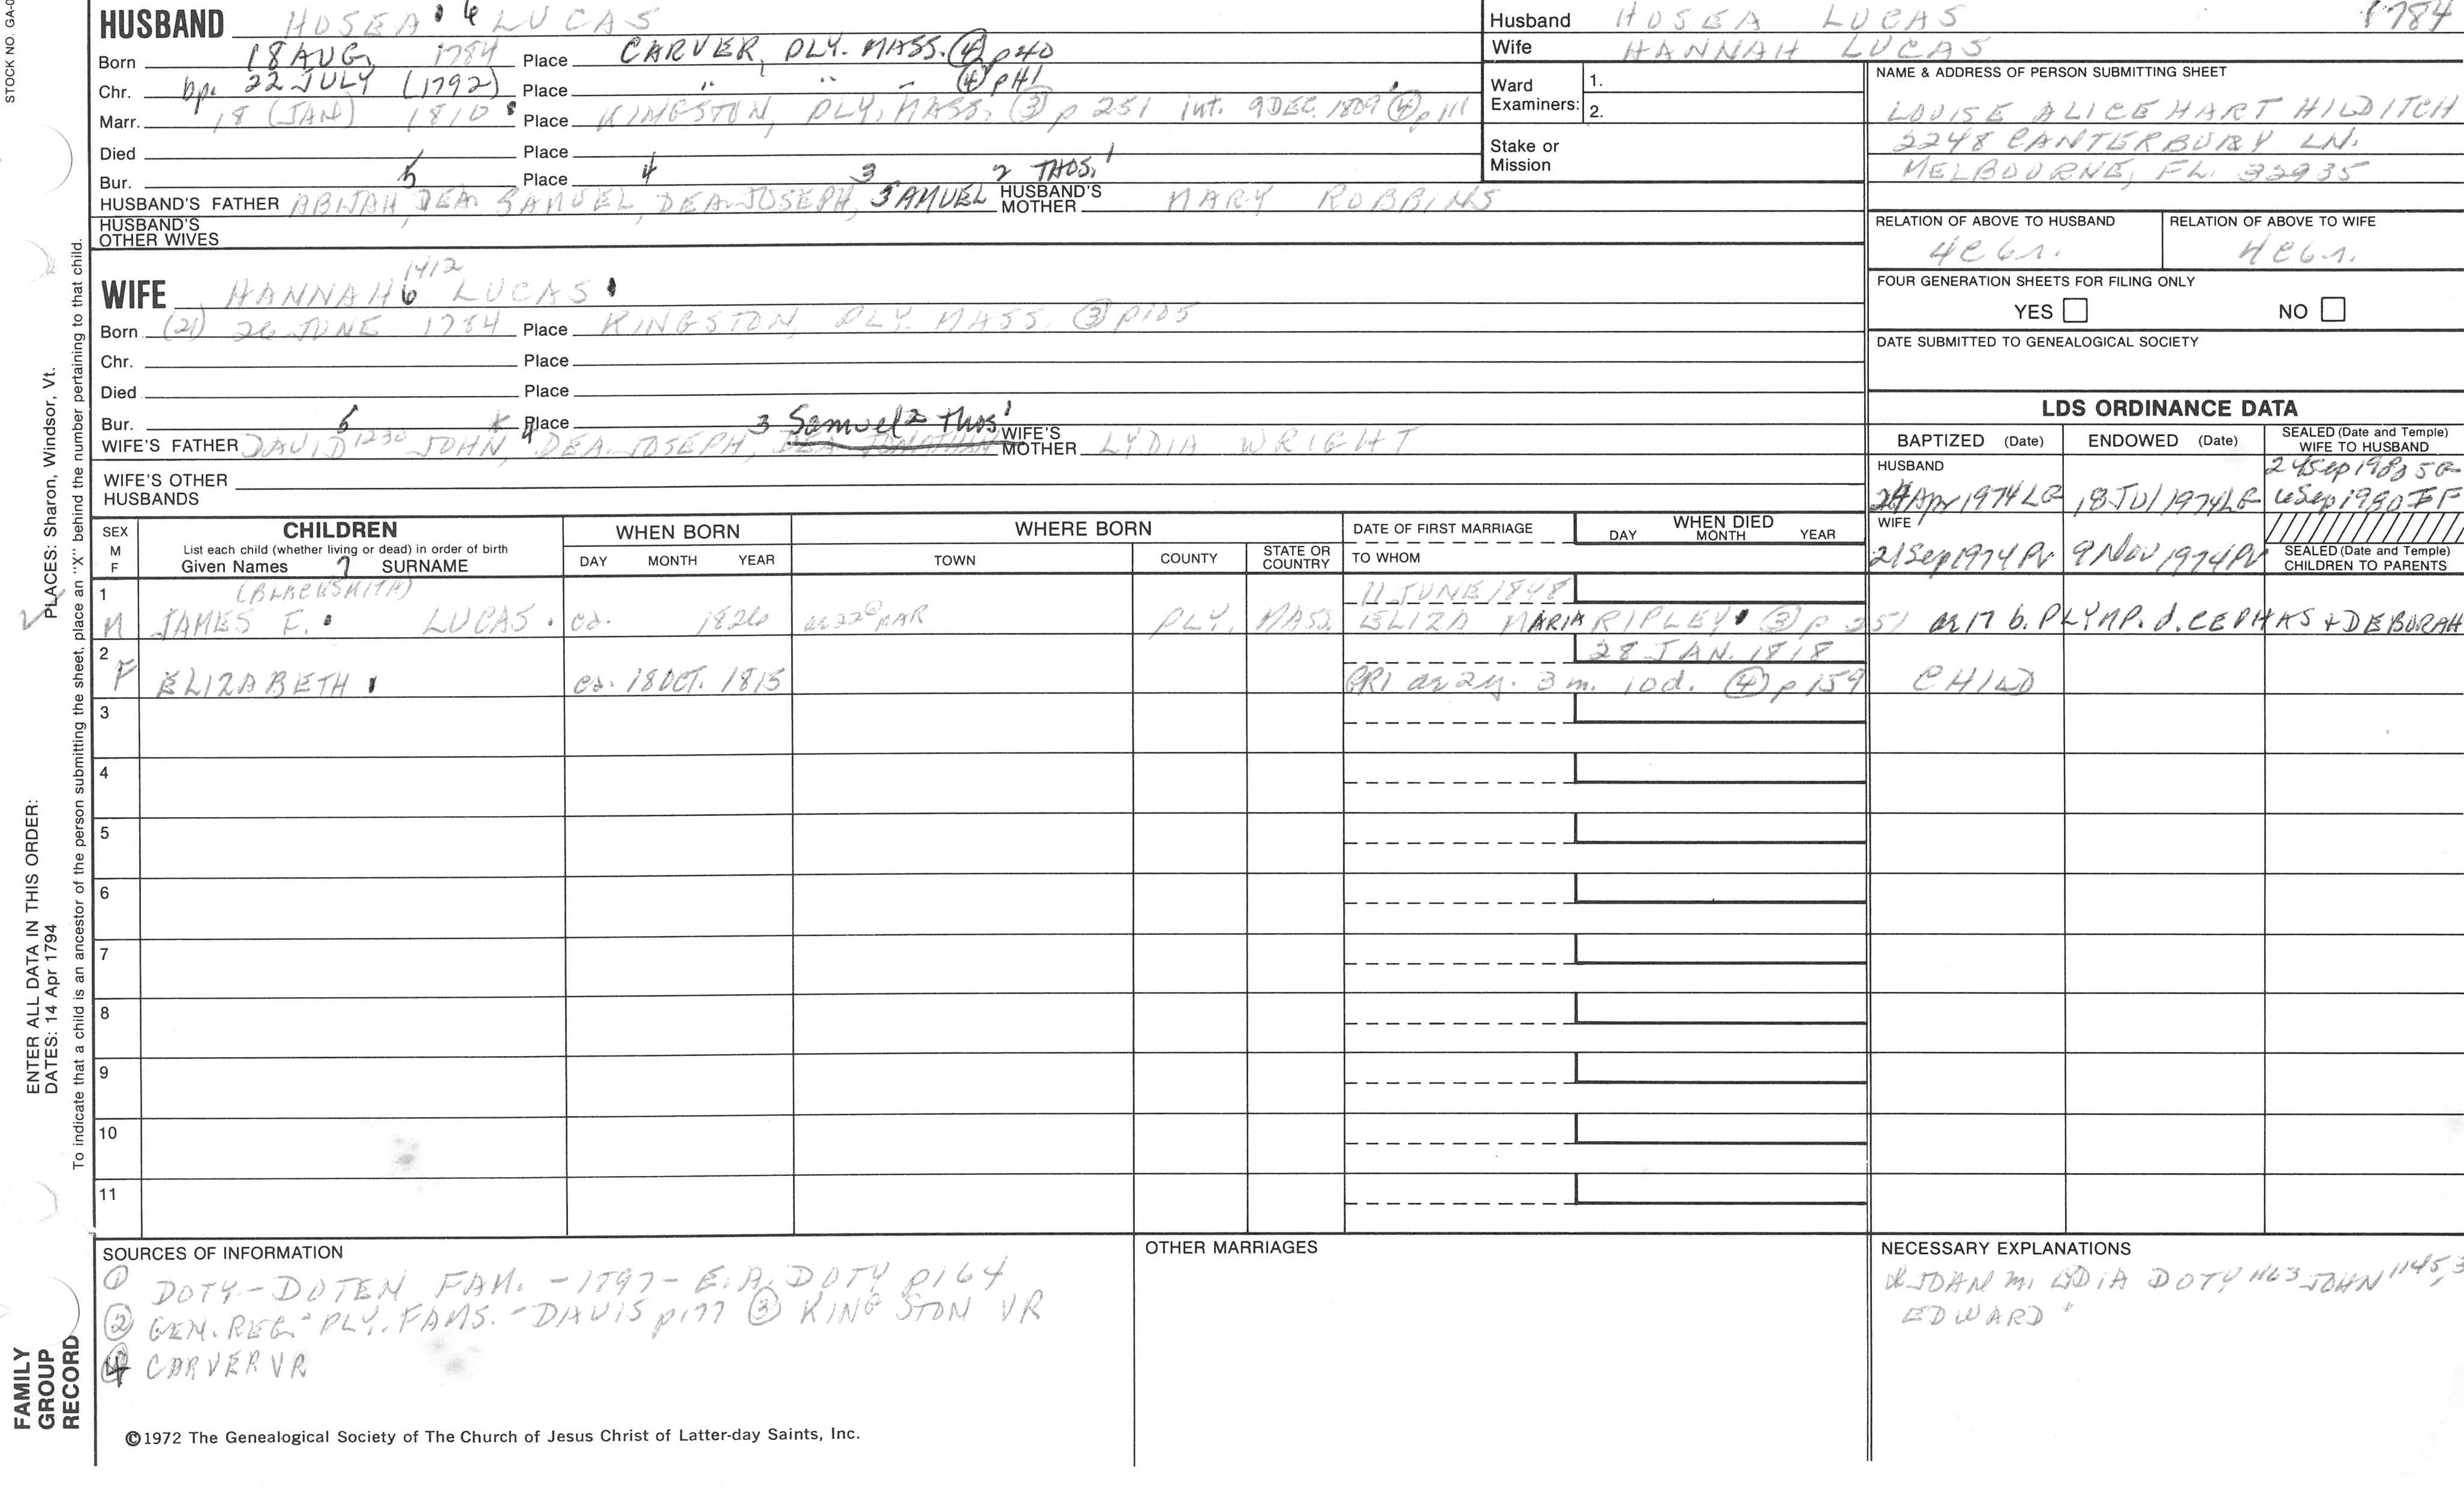 STOCK NO. GA-0
HUSBAND HOSEA 6 LUCAS
Born 18 AUG. 1784 Place CARVER, PLY. MASS. ④ p40
Chr. bp. 22 JULY (1792) Place " " " ④ p41
Marr. 18 (JAN) 1810 Place KINGSTON, PLY. MASS. ③ p 251 int. 9 DEC. 1809 ④ p 111
Died Place
Bur. Place
5 4 3 2 THOS. 1
HUSBAND'S FATHER ABIJAH, DEA. SAMUEL, DEA. JOSEPH, SAMUEL HUSBAND'S MOTHER MARY ROBBINS
HUSBAND'S OTHER WIVES
1412
WIFE HANNAH 6 LUCAS
Born (21) 26 JUNE 1784 Place KINGSTON, PLY. MASS. ③ p105
Chr. Place
Died Place
Bur. Place
5 4 3 Samuel 2 Thos 1
WIFE'S FATHER DAVID 1230 JOHN, DEA. JOSEPH, DEA. JONATHAN WIFE'S MOTHER LYDIA WRIGHT
WIFE'S OTHER HUSBANDS
Husband HOSEA LUCAS 1784
Wife HANNAH LUCAS
Ward Examiners: 1.
2.
Stake or Mission
NAME & ADDRESS OF PERSON SUBMITTING SHEET
LOUISE ALICE HART HILDITCH
2248 CANTERBURY LN.
MELBOURNE, FL. 32935
RELATION OF ABOVE TO HUSBAND RELATION OF ABOVE TO WIFE
4C6r. 4C6r.
FOUR GENERATION SHEETS FOR FILING ONLY
YES NO
DATE SUBMITTED TO GENEALOGICAL SOCIETY
LDS ORDINANCE DATA
BAPTIZED (Date) ENDOWED (Date) SEALED (Date and Temple) WIFE TO HUSBAND
HUSBAND
24 Apr 1974 LG 18 Jul 1974 LG 6 Sep 1990 IF
WIFE
21 Sep 1974 Pv 9 Nov 1974 Pv SEALED (Date and Temple) CHILDREN TO PARENTS
SEX M F
CHILDREN
List each child (whether living or dead) in order of birth
Given Names 7 SURNAME
WHEN BORN
DAY MONTH YEAR
WHERE BORN
TOWN COUNTY STATE OR COUNTRY
DATE OF FIRST MARRIAGE
TO WHOM
WHEN DIED
DAY MONTH YEAR
1 (BLACKSMITH) 11 JUNE 1848
M JAMES F. LUCAS ca. 1826 ae 22 @ MAR PLY. MASS. ELIZA MARIA RIPLEY ③ p 251 ae 17 b. PLYMP. d. CEPHAS + DEBORAH
2 28 JAN. 1818
F ELIZABETH ca. 18 OCT. 1815 CR1 ae 2y. 3m. 10d. ④ p 159 CHILD
3
4
5
6
7
8
9
10
11
SOURCES OF INFORMATION
① DOTY-DOTEN FAM. -1897- E.A. DOTY p164
② GEN. REG. - PLY. FAMS. - DAVIS p177 ③ KINGSTON VR
④ CARVER VR
OTHER MARRIAGES
NECESSARY EXPLANATIONS
JOHN m. LYDIA DOTY 1163 JOHN 1145, 3
EDWARD "
©1972 The Genealogical Society of The Church of Jesus Christ of Latter-day Saints, Inc.
FAMILY GROUP RECORD
ENTER ALL DATA IN THIS ORDER:
DATES: 14 Apr 1794
PLACES: Sharon, Windsor, Vt.
To indicate that a child is an ancestor of the person submitting the sheet, place an "X" behind the number pertaining to that child.